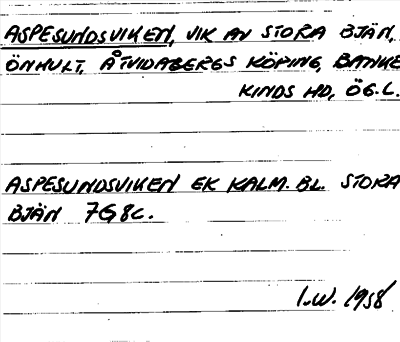 ASPESUNDSVIKEN, VIK AV STORA BJÄN,
ÖNHULT, ÅTVIDABERGS KÖPING, BANKE
KINDS HD, ÖG.L.
ASPESUNDSVIKEN EK KALM. BL. STORA
BJÄN 7G8c.
I.W. 1958